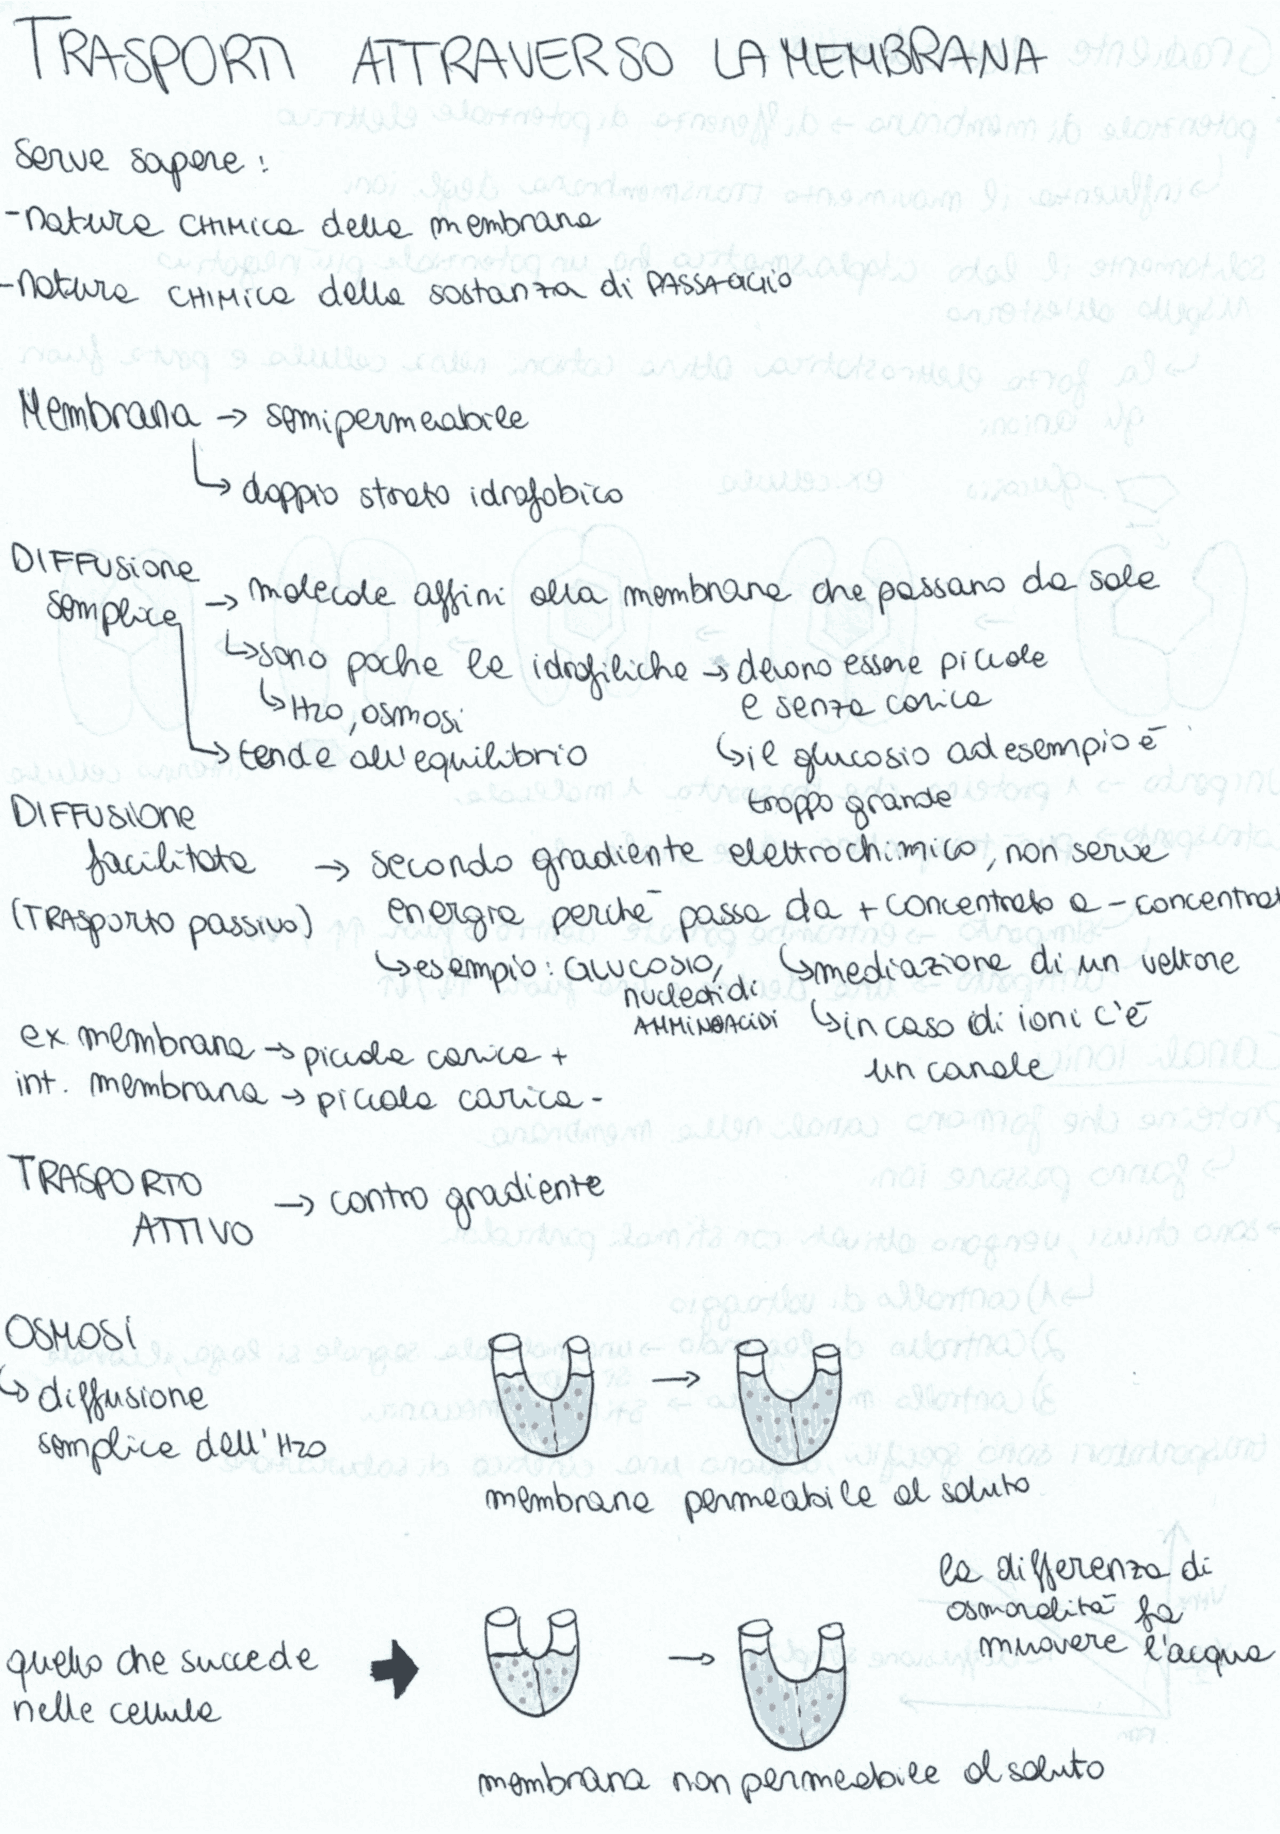 TRASPORTI ATTRAVERSO LA MEMBRANA
serve sapere:
-natura CHIMICA della membrana
-natura CHIMICA della sostanza di PASSAGGIO
Membrana → semipermeabile
↳ doppio strato idrofobico
DIFFUSIONE
semplice → molecole affini alla membrana che passano da sole
↳ sono poche le idrofiliche → devono essere piccole
e senza carica
↳ H2O, osmosi
↳ tende all'equilibrio
↳ il glucosio ad esempio è
troppo grande
DIFFUSIONE
facilitata → secondo gradiente elettrochimico, non serve
(TRASPORTO passivo) energia perché passa da + concentrato a - concentrat
↳ esempio: GLUCOSIO,
nucleotidi
AMMINOACIDI
↳ mediazione di un vettore
↳ in caso di ioni c'è
un canale
ex membrana → piccola carica +
int. membrana → piccola carica -
TRASPORTO
ATTIVO → contro gradiente
OSMOSI
↳ diffusione
semplice dell'H2O
→
membrana permeabile al soluto
la differenza di
osmoralità fa
muovere l'acqua
quello che succede
nelle cellule
→
membrana non permeabile al soluto